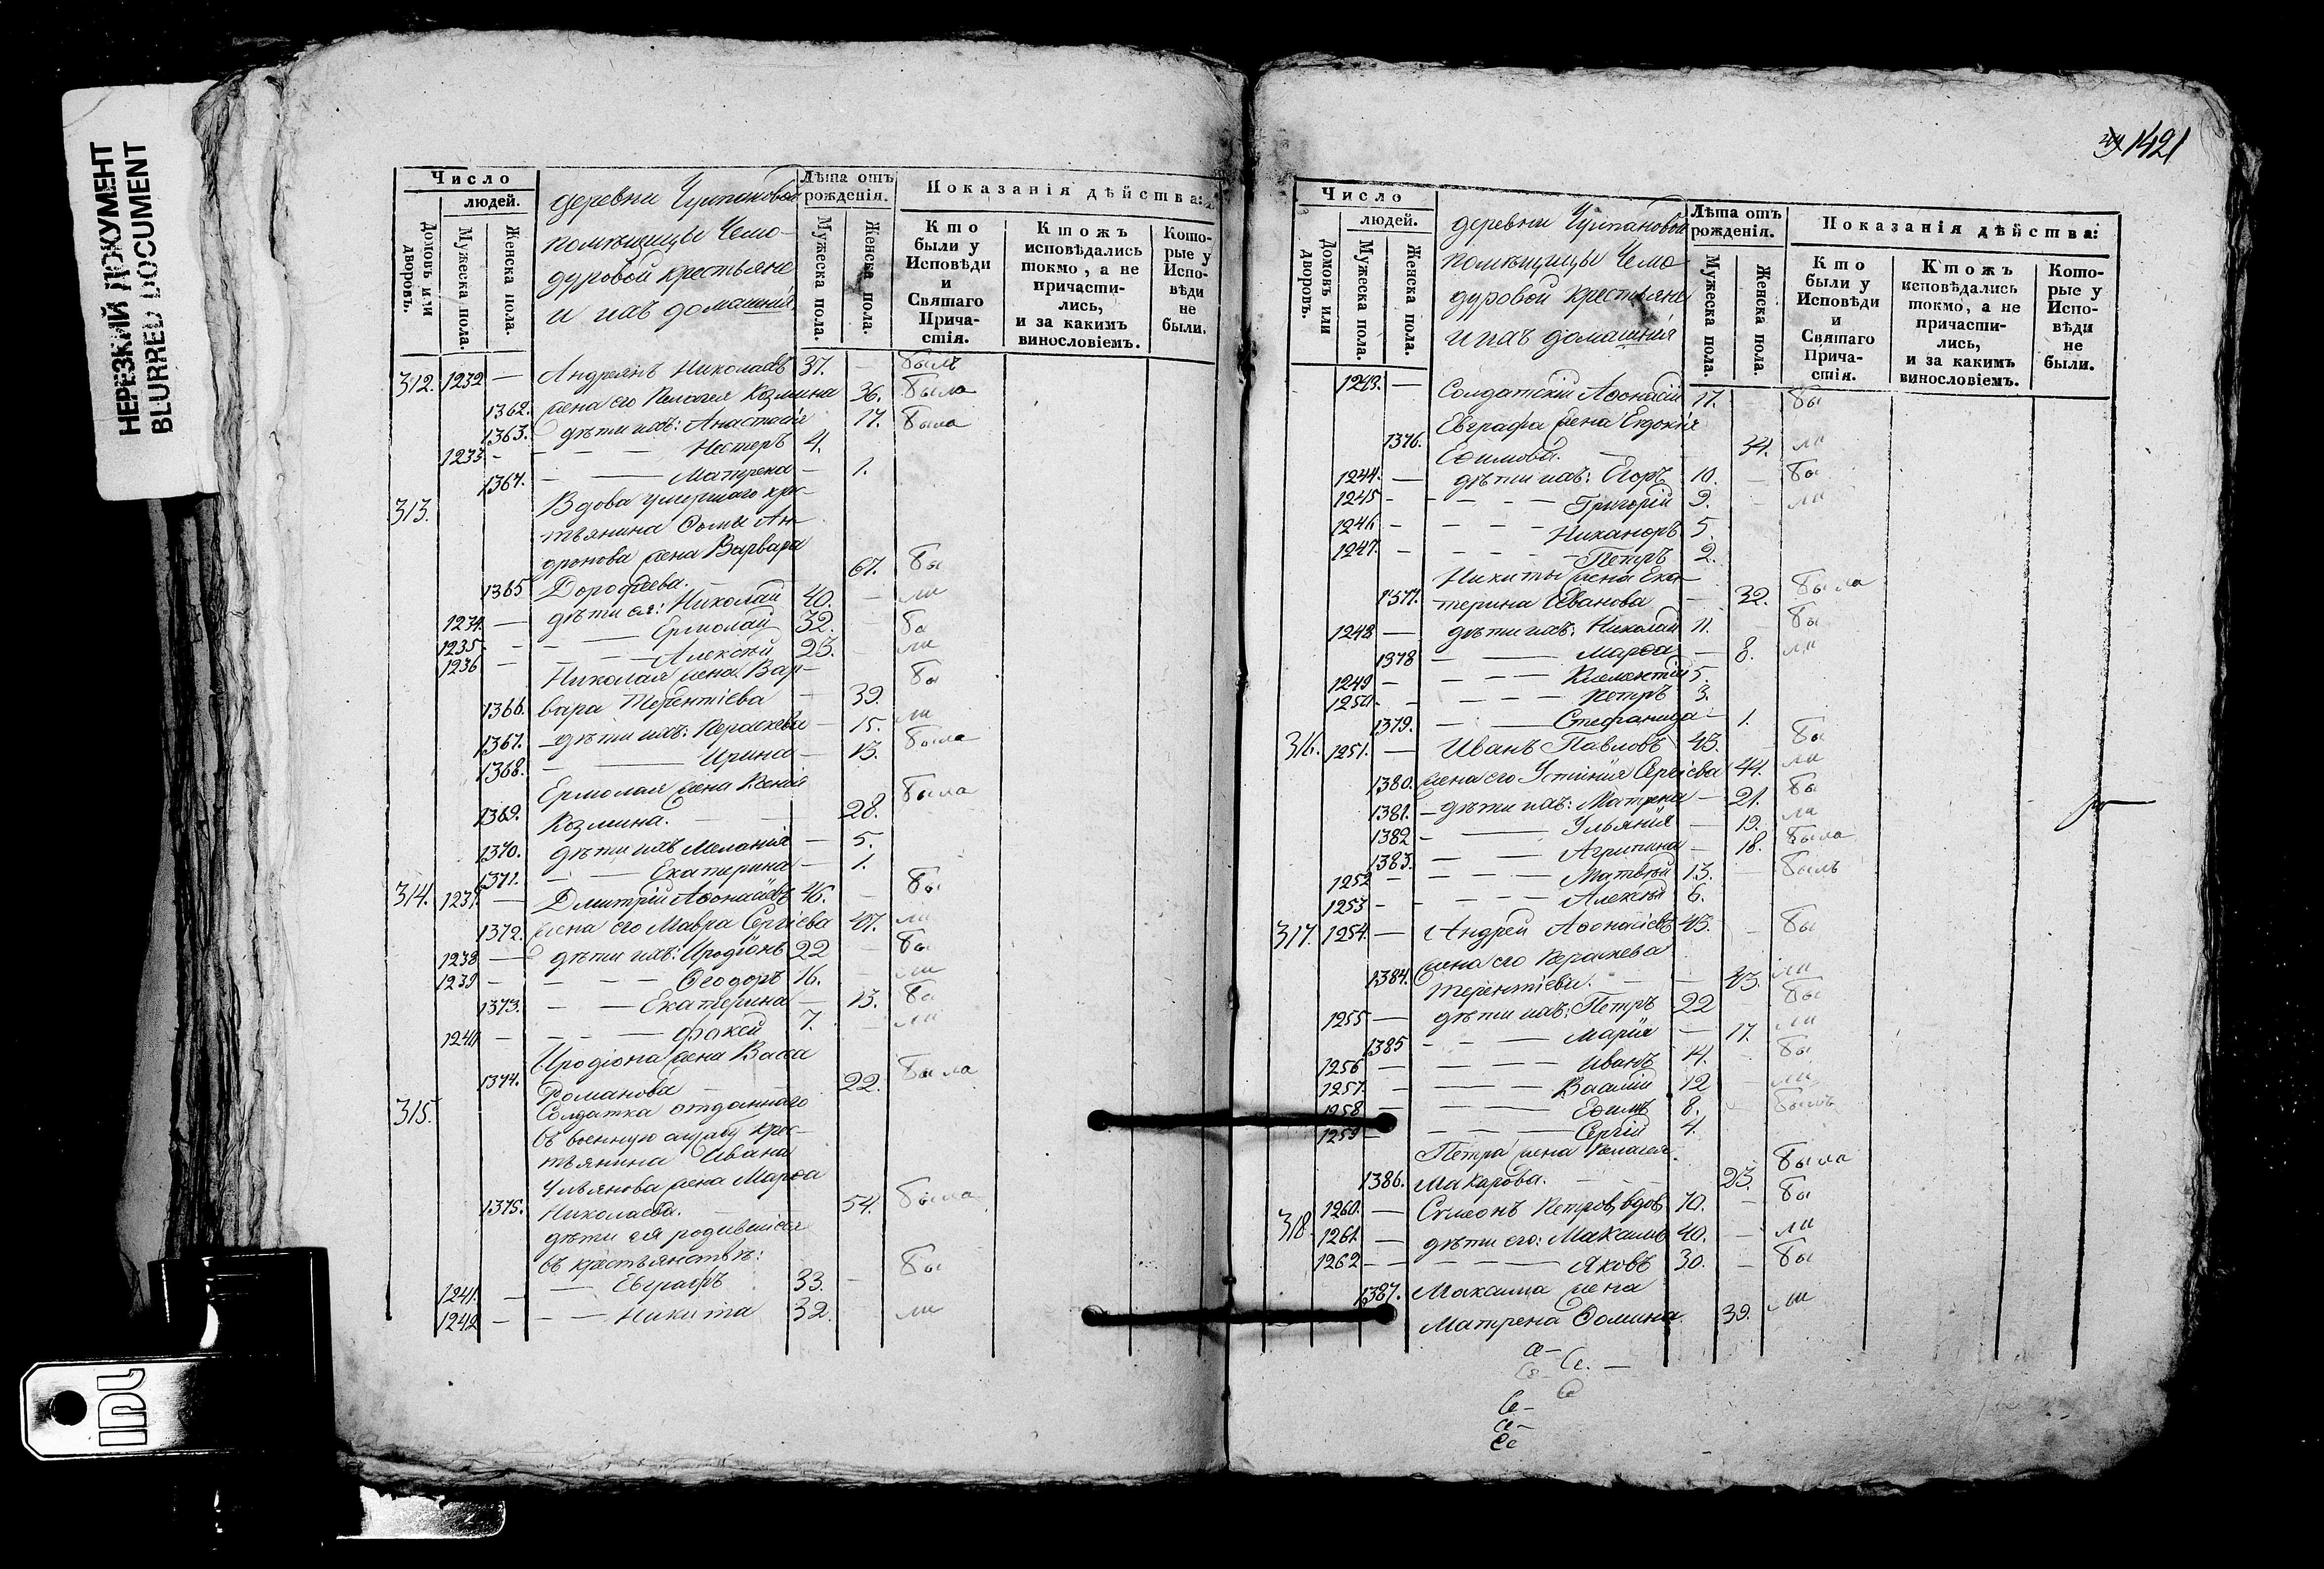 НЕРЕЗКИЙ ДОКУМЕНТ
BLURRED DOCUMENT
Число
людей.
Домовъ или дворовъ.
Мужеска пола.
Женска пола.
деревни
помѣщицы Чемо-
дуровой крестьяне
и ихъ домашнія
Лѣта отъ рожденія.
Мужеска пола.
Женска пола.
Показанія дѣйства:
Кто были у Исповѣди и Святаго Прича-стія.
Ктожъ исповѣдались токмо, а не причасти-лись, и за какимъ винословіемъ.
Кото-рые у Испо-вѣди не были.
312. 1232 — Андреянъ Николаевъ 37. — былъ
1362. жена его Пелагея Козмина 36. была
1363. дѣти ихъ: Анастасія 17. была
1233 - — — Нестеръ 4.
1364. — — Матрена — 1.
313. Вдова умершаго крес-
тьянина Ѳомы Ан-
дронова жена Варвара
1365 Дороѳеева. — 67. бы
1234. — дѣти ея: Николай 40. — ли
1235. — — Ермолай 32. бы
1236 — — Алексѣй 23. ли
Николая жена Вар-
1366. вара Терентіева — 39. бы
1367. — дѣти ихъ: Параскева — 15. ли
1368. — — Ирина — 13. была
Ермолая жена Ксенія
1369. Козмина. — — 28. была
1370. дѣти ихъ Меланія — 5.
1371. — — Екатерина — 1.
314. 1237. — Дмитрій Аѳонасіевъ 46. — бы
1372. жена его Мавра Сергіева 47. ли
1238 — дѣти ихъ: Иродіонъ 22 — бы
1239 — — — Ѳеодоръ 16. — ли
1373. — — Екатерина — 13. бы
1240 — — — Фокей 7. — ли
Иродіона жена Васса
1374. Романова — 22. была
315. Солдатка отданнаго
въ военную службу крес-
тьянина Ивана
Ульянова жена Марѳа
1375. Николаева. — 54. была
дѣти ея родившіеся
въ крестьянствѣ:
1241. — — Евграфъ 33. — бы
1242 — — — Никита 32. ли
1421
Число
людей.
Домовъ или дворовъ.
Мужеска пола.
Женска пола.
деревни
помѣщицы Чемо
дуровой крестьяне
и ихъ домашнія
Лѣта отъ рожденія.
Мужеска пола.
Женска пола.
Показанія дѣйства:
Кто были у Исповѣди и Святаго Прича-стія.
Ктожъ исповѣдались токмо, а не причасти-лись, и за какимъ винословіемъ.
Кото-рые у Испо-вѣди не были.
1243. — Солдатскій Аѳонасій 17. бы
Евграфа жена Евдокія
1376. Ефимова. — 34. ли
1244. — дѣти ихъ: Егоръ 10. — бы
1245 — — — Григорій 9. — ли
1246 — — — Никаноръ 5.
1247. — — — Петръ 2.
Никиты жена Ека-
1377. терина Иванова — 32. была
1248 — дѣти ихъ: Николай 11. — бы
1378 — — Марѳа — 8. ли
1249 — — — 5.
1250. — — — Петръ 3.
1379. — — Стефанида — 1.
316. 1251. — Иванъ Павловъ 43. — бы
1380. жена его Устинія Сергіева 44. ли
1381. — дѣти ихъ: Матрена — 21. бы
1382 — — Ульянія — 19. ли
1383. — — Агрипина — 18. была
1252 — — — Матвѣй 13. — былъ
1253 — — — Алексѣй 6.
317. 1254. — Андрей Аѳонасіевъ 43. — бы
жена его Параскева
1384. Терентіева. — — 43. ли
1255 — дѣти ихъ: Петръ 22 бы
1385 — — Марія — 17. ли
1256 — — — Иванъ 14. — бы
1257. — — — Василій 12 — ли
1258 — — — Ефимъ 8. — былъ
1259 — — — Сергій 4.
Петра жена Пелагея
1386. Макарова. — — 23. была
318. 1260. — Сѵмеонъ Петровъ, вдовъ 70. — бы
1261. — дѣти его: Максимъ 40. — ли
1262 — — — Яковъ 30. — бы
1387. Максима жена
Матрена Ѳомина 39. ли